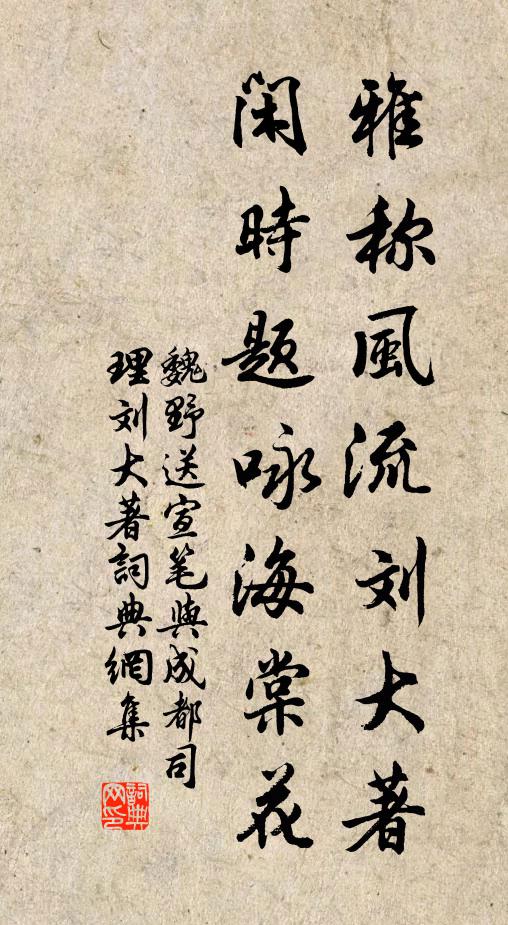 雅称風流刘大著
闲時题咏海棠花
魏野送宣笔與成都司
理刘大著詞典網集
詞典
网印